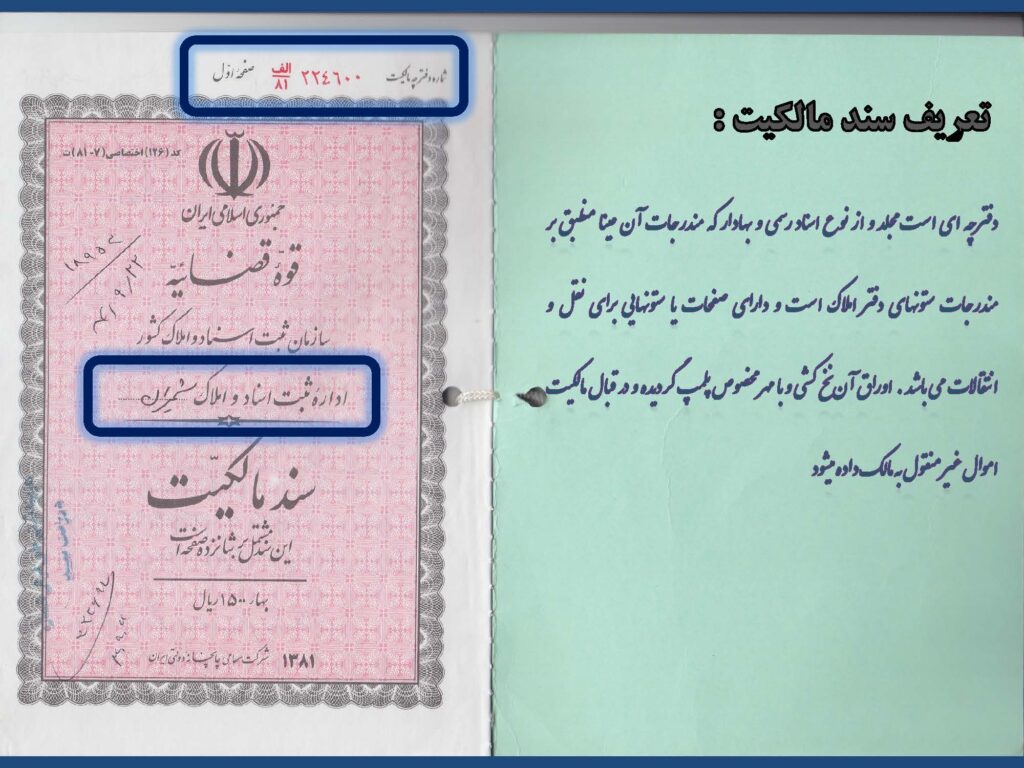 تعریف سند مالکیت :
دفترچه ای است مجلد و از نوع اسناد رسمی و بهادار که مندرجات آن عینا منطبق بر
مندرجات ستونهای دفتر املاک است و دارای صفحات یا ستونهایی برای نقل و
انتقالات می باشد . اوراق آن نخ کشی و با مهر مخصوص پلمپ گردیده و در قبال مالکیت
اموال غیر منقول به مالک داده میشود
شماره دفترچه مالکیت ۲۲٤٦۰۰ الف ۸۱ صفحهٔ اوّل
کد (۱۲۶) اختصاصی (۷-۸۱) ت
جمهوری اسلامی ایران
قوّهٔ قضائیّه
سازمان ثبت اسناد و املاک کشور
ادارهٔ ثبت اسناد و املاک شمیران
سند مالکیّت
این سند مشتمل بر شانزده صفحه است
بهاء ۱۵۰۰ ریال
۱۳۸۱ شرکت سهامی چاپخانه دولتی ایران